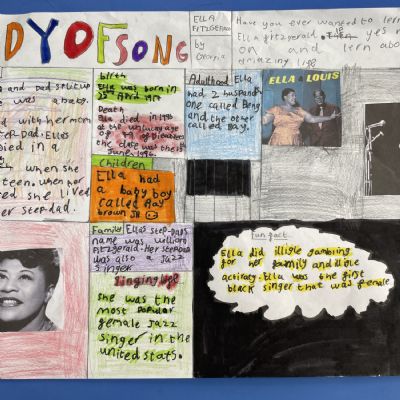 DY OF SONG
ELLA
FITZGERALD
by
Have you ever wanted to lern
Ella fitzgerald. yes
on and lern abo
amazing life
and Dad split up
was a baby.
d with her mom
ep dad. Ellas
died in a
when she
teen. when her
ed she lived
er step dad.
birth
Ella was born in
25th April 1917
Death
Ella died in 1996
at the age
of 79 of
the date was the
June 1996.
Adulthood Ella
had 2 husband
one called Beng
and the other
called Ray.
ELLA & LOUIS
Children
Ella had
a baby boy
called Ray
brown JR
Family Ella's step-dads
name was william
Fitzgerald. Her step Dad
was also a Jazz
singer
Singing life
she was the
most popular
female Jazz
singer in the
united stats.
fun fact
Ella did illigle gambling
for her family and
activaty. Ella was the first
black singer that was female